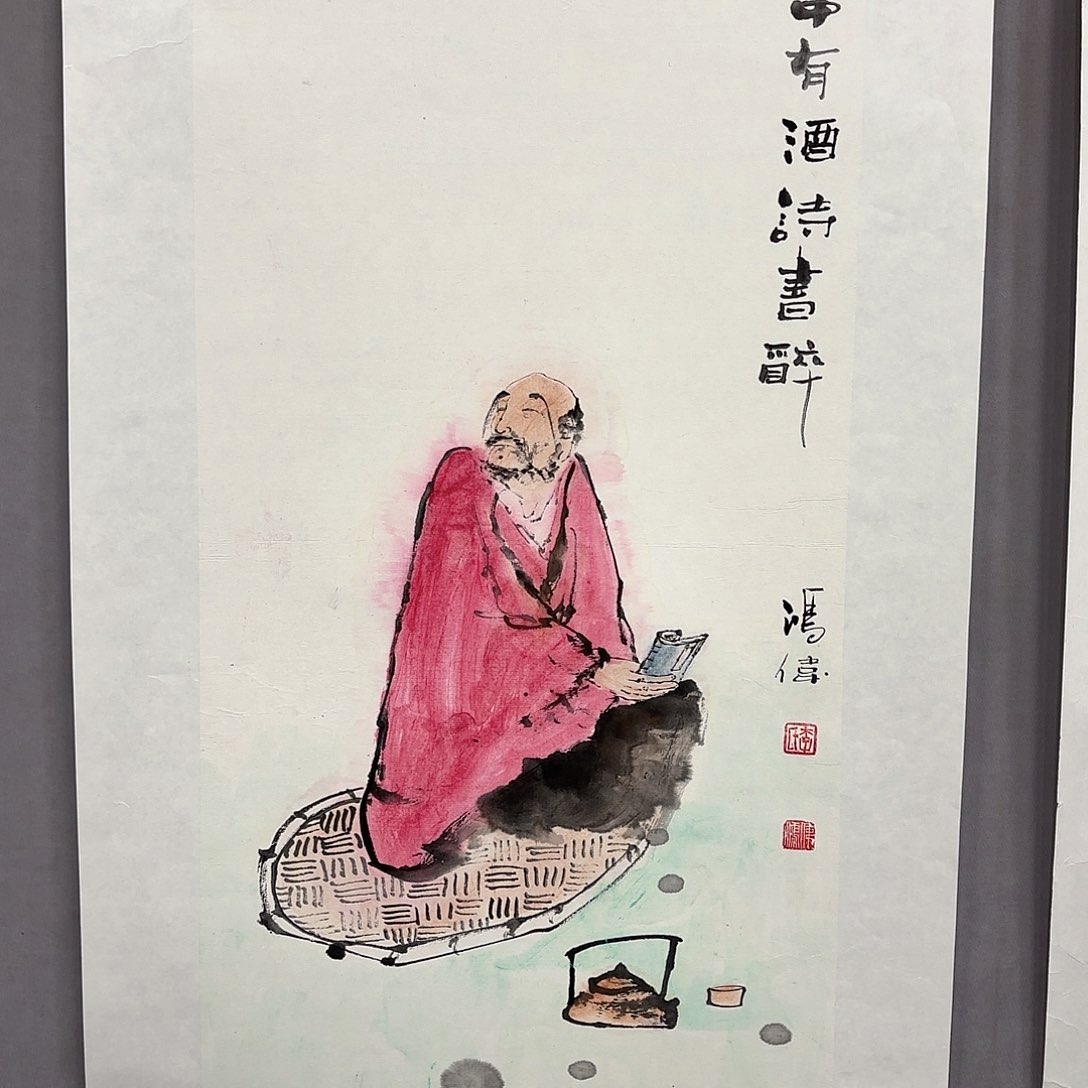 中有酒詩書醉
鴻偉